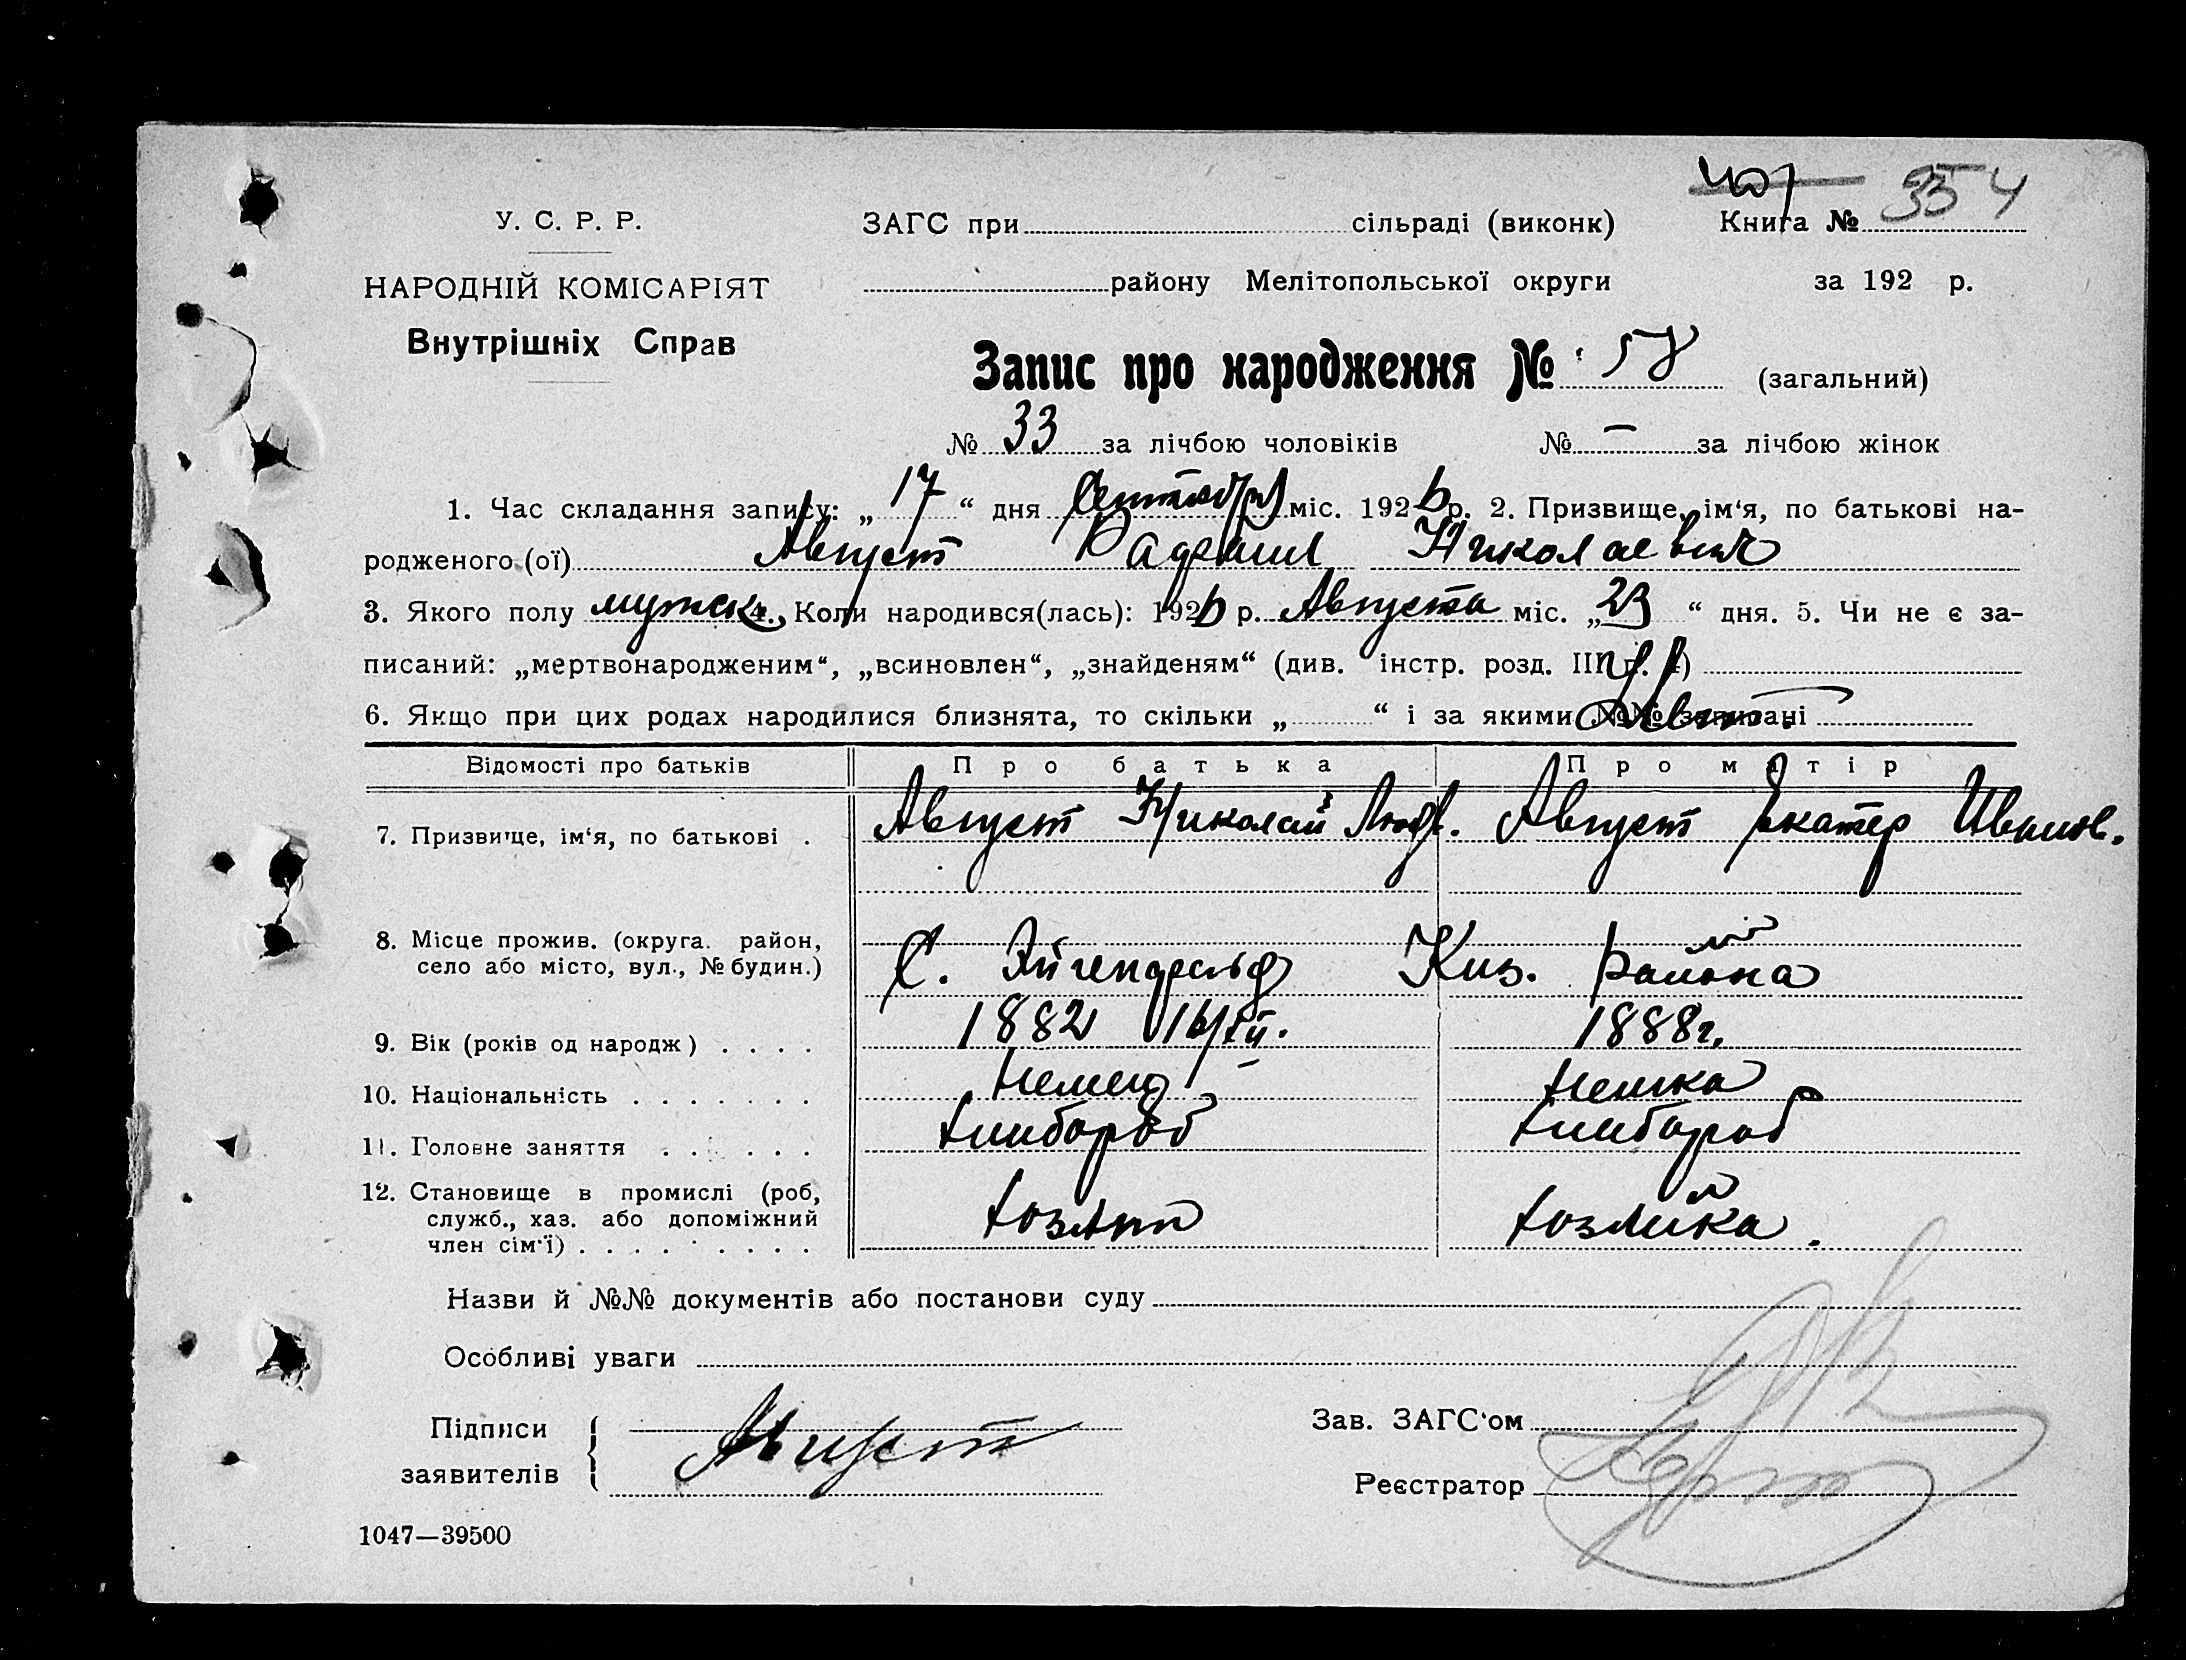 407 354
У. С. Р. Р. ЗАГС при сільраді (виконк) Книга №
НАРОДНІЙ КОМІСАРІЯТ району Мелітопольської округи за 192 р.
Внутрішніх Справ
Запис про народження № 58 (загальний)
№ 33 за лічбою чоловіків № — за лічбою жінок
1. Час складання запису: „ 17 “ дня Сентября міс. 1926 р. 2. Призвище, ім‘я, по батькові на-
родженого (ої) Август Николаевич
3. Якого полу мужск 4. Коли народився(лась): 1926 р. Августа міс. „ 23 “ дня. 5. Чи не є за-
писаний: „мертвонародженим“, „всиновлен“, „знайденям“ (див. інстр. розд. III п. 4)
6. Якщо при цих родах народилися близнята, то скільки „ “ і за якими №№ записані
Відомості про батьків Про батька Про матір
7. Призвище, ім‘я, по батькові . Август Николай Август Екатер Иванов.
8. Місце прожив. (округа. район,
село або місто, вул., № будин.) С. Эйгенфельд Киз. района
9. Вік (років од народж) . . . . 1882 16/XII. 1888г.
10. Національність . . . . . . . Немец Немка
11. Головне заняття . . . . . . хлибороб хлибороб
12. Становище в промислі (роб,
служб., хаз. або допоміжний
член сім‘ї) . . . . . . . . . хозяин хозяйка.
Назви й №№ документів або постанови суду
Особливі уваги
Підписи
заявителів Август
Зав. ЗАГС‘ом
Реєстратор
1047—39500